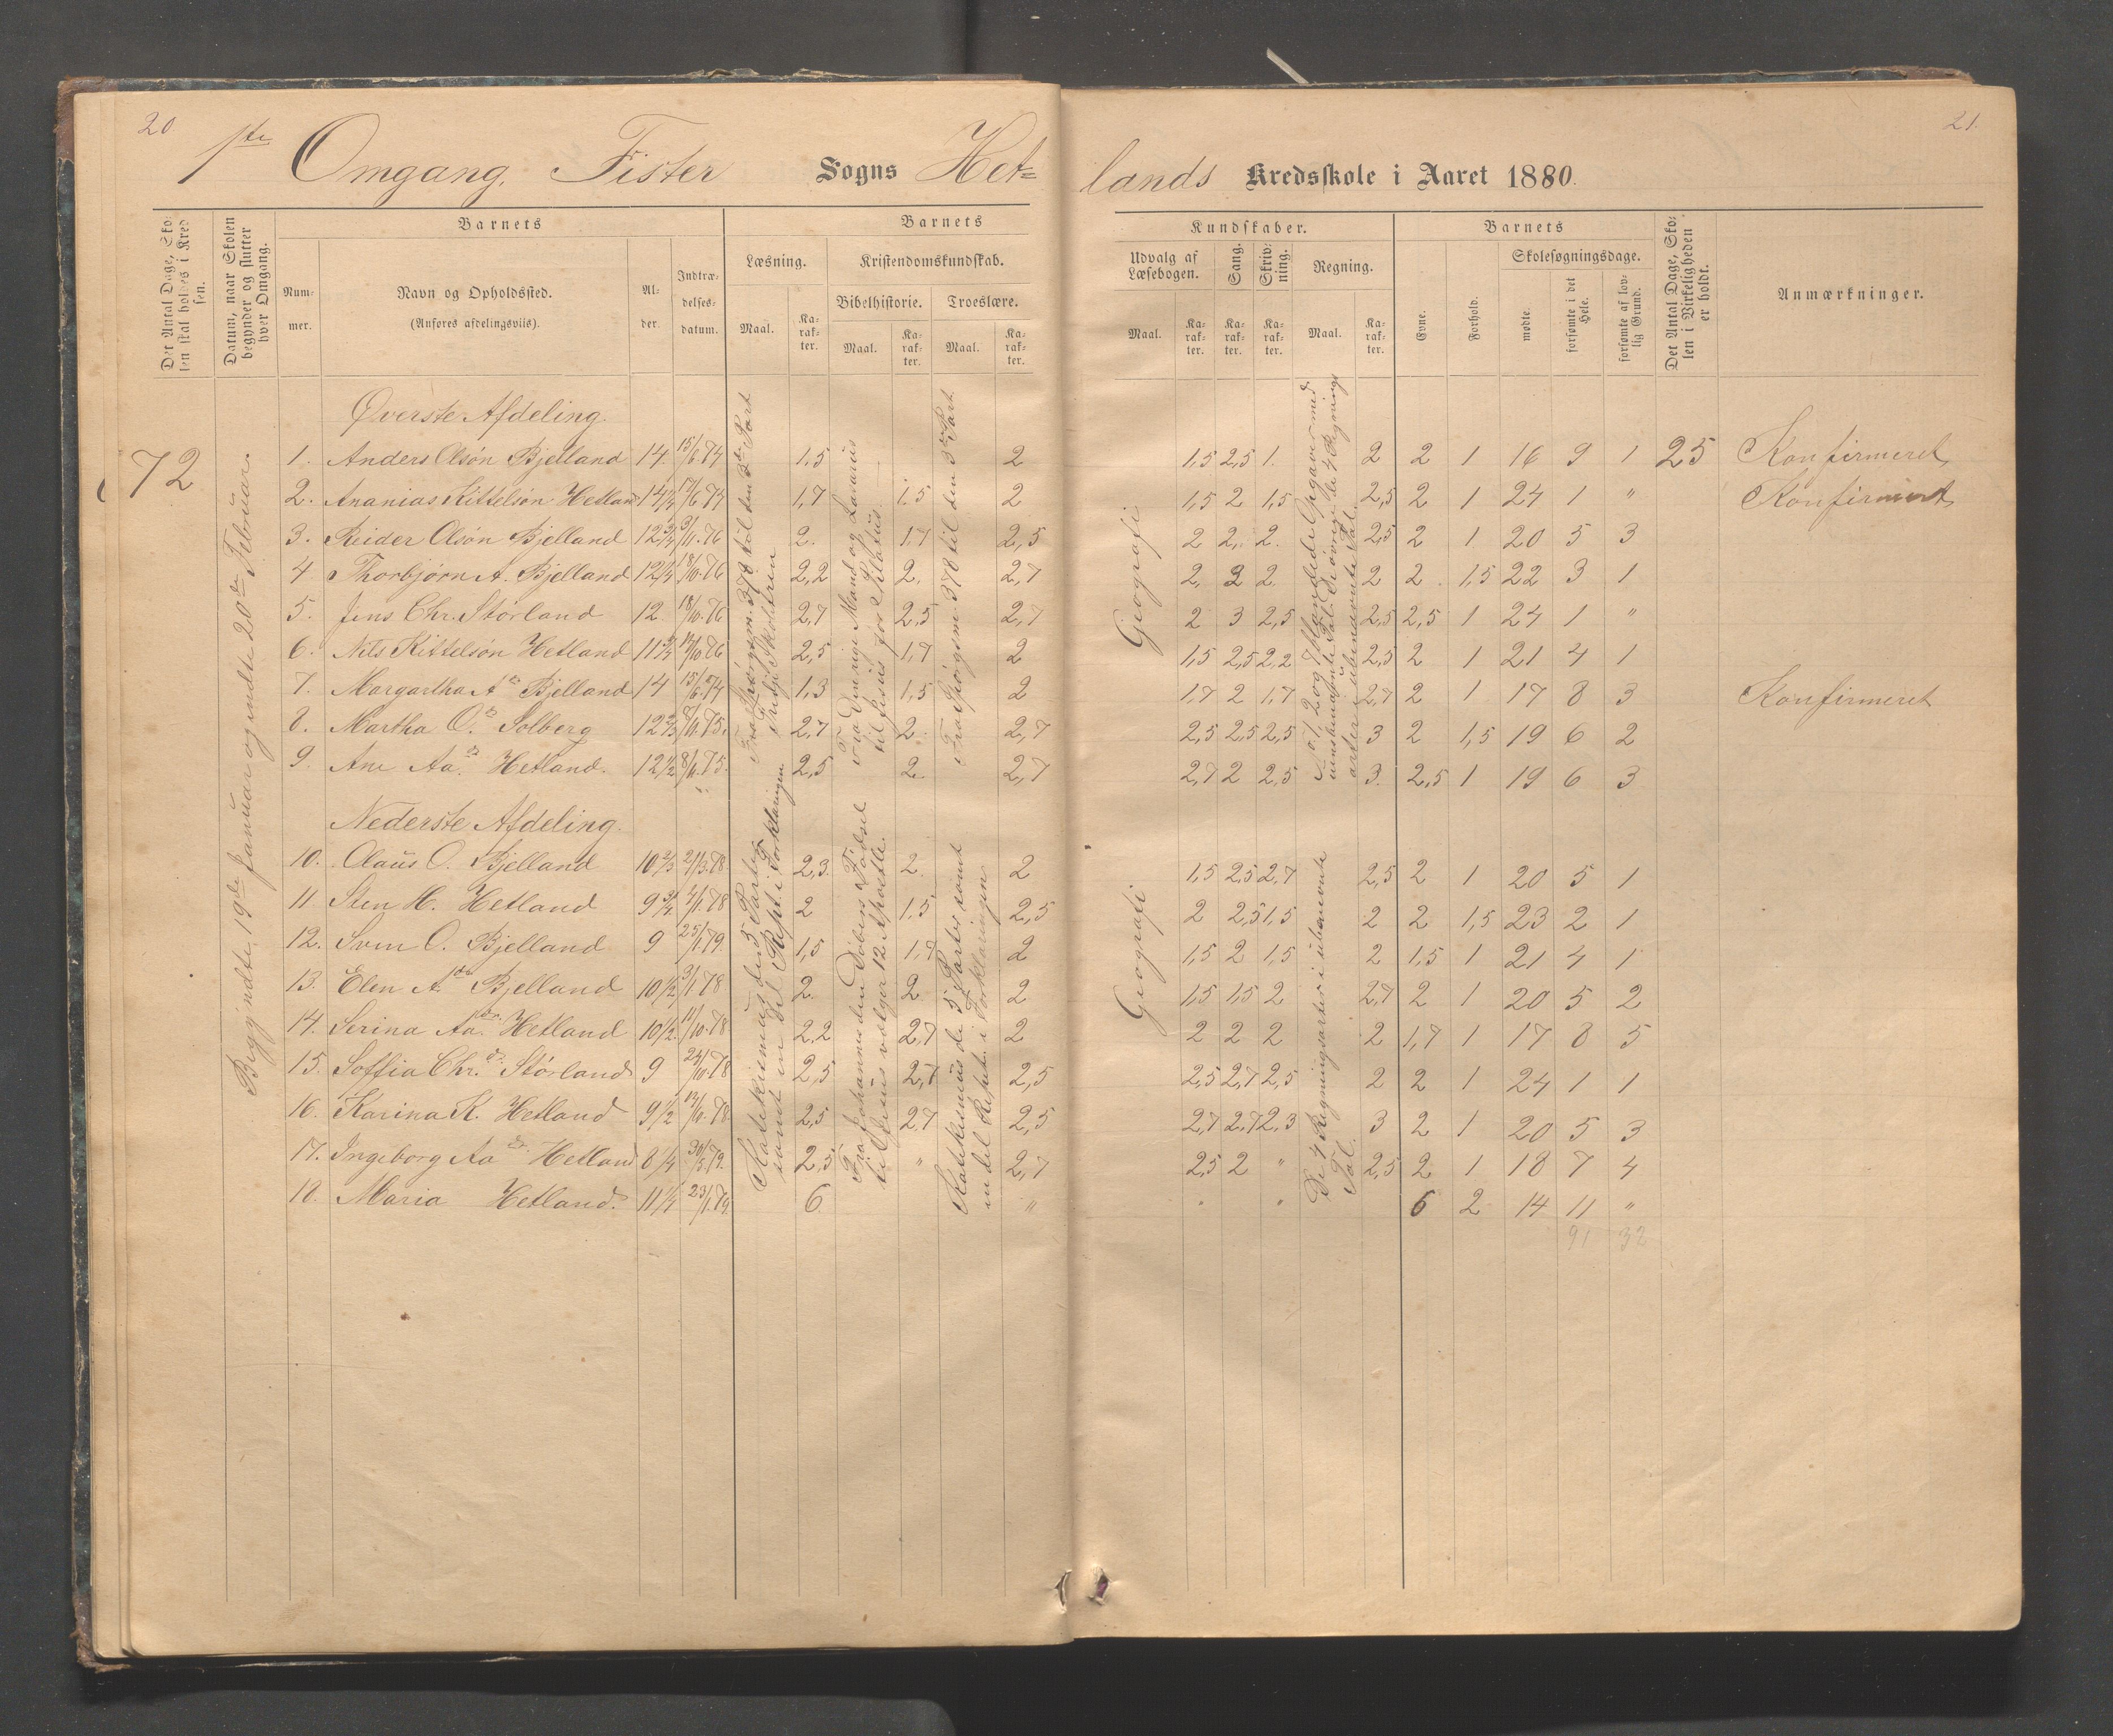 20
21.
1ste Omgang, Fister Sogns Het=
lands Kredsskole i Aaret 1880.
Det Antal Dage, Sko=
len skal holdes i Kred
sen.
Datum, naar Skolen
begynder og slutter
hver Omgang.
Barnets
Num=
mer.
Navn og Opholdssted.
(Anføres afdelingsviis).
Al=
der.
Indtræ=
delses=
datum.
Barnets
Læsning.
Maal.
Ka=
rak=
ter.
Kristendomskundskab.
Bibelhistorie.
Maal.
Ka=
rak=
ter.
Troeslære.
Maal.
Ka=
rak=
ter.
Kundskaber.
Udvalg af
Læsebogen.
Maal.
Ka=
rak=
ter.
Sang.
Ka=
rak=
ter.
Skriv=
ning.
Ka=
rak=
ter.
Regning.
Maal.
Ka=
rak=
ter.
Barnets
Evne.
Forhold.
Skolesøgningsdage.
mødte.
forsømte i det
Hele.
forsømte af lov=
lig Grund.
Det Antal Dage, Sko=
len i Virkeligheden
er holdt.
Anmærkninger.
72
Begyndte 19de Januar og endte 20de Februar.
Øverste Afdeling.
1. Anders Olsøn Bjelland 14. 15/6.74 1,5 2 1,5 2,5 1. 2 2 1 16 9 1 25 Konfirmeret
2. Ananias Kittelsøn Hetland 1,7 1,5 2 1,5 2 1,5 2,5 2 1 24 1 " Konfirmeret
3. Reider Olsøn Bjelland 12 3/4 2. 1,7 2,5 2 2. 2. 2,5 2 1 20 5 3
4 Thorbjørn A. Bjelland 12 1/4 18/10.76 2,2 2. 2,7 2 2 2 2 1,5 22 3 1
5. Jens Chr. Størland 12 18/10.76 2,7 2,5 2,7 2 3 2,5 2,5 2,5 1 24 1 "
6. Nils Kittelsøn Hetland 2,5 1,7 2 1,5 2,5 2,2 2,5 2 1 21 4 1
7. Margartha A Bjelland 14 15/6.74 1,3 1,5 2 1,7 2 1,7 2,7 2 17 8 3 Konfirmeret
8. Martha O. Solberg 2,7 2. 2,7 2,5 2,5 2,5 3 2 1,5 19 6 2
9. Ane Aa. Hetland. 12 1/2 2,5 2. 2,7 2,7 2 2,5 3. 2,5 1 19 6 3
Fra Spørgsm. 378 til den 3die Part
Tredje Skoletrin
Fra Den rige Mand og Lazarus
til Jesus for Pilatus.
Fra Spørgsm. 378 til den 3die Part
Geografi
Nederste Afdeling.
10. Claus O. Bjelland 2,3. 2. 2 1,5 2,5 2,7 2,5 2 1 20 5 1
11 Sten H. Hetland 9 3/4 2 1,5 2,5 2 2,5 1,5 2 2 1,5 23 2 1
12. Sven O. Bjelland 9 25/1.79. 1,5 1,7 2 1,5 2 1,5 2 1,5 1 21 4 1
13. Elen A. Bjelland 10 1/2 3/1 78 2. 2 2 1,5 1,5 2 2,7 2 1 20 5 2
14. Serina Aa. Hetland 2,2 2,7 2 2 2 2 2 1,7 1 17 8 5
15. Soffia Chr. Størland 9 2,5 2,7 2,5 2,5 2,7 2,5 2 2 1 24 1 1
16. Karina K. Hetland 9 1/2 2,5 2,7 2,5 2,7 2,7 2,3 3 2 1 20 5 3
17. Ingeborg Aa Hetland 2,5 " 2,7 2,5 2 " 2,5 2 1 18 7 4
18. Maria Hetland. 11 1/4 23/1.79. 6. " " " 6 2 14 11 "
91 32
Katekismus de 5 Parter
samt en Del Rept. i Forklaringen
Fra Johannes den Døbers Fødsel
til Jesus vælger 12 Apostle.
Katekismus de 5 Parter samt
en del Reptet. i Forklaringen
Geografi
De 4 Regningsarter i ubenævnte
Tal.